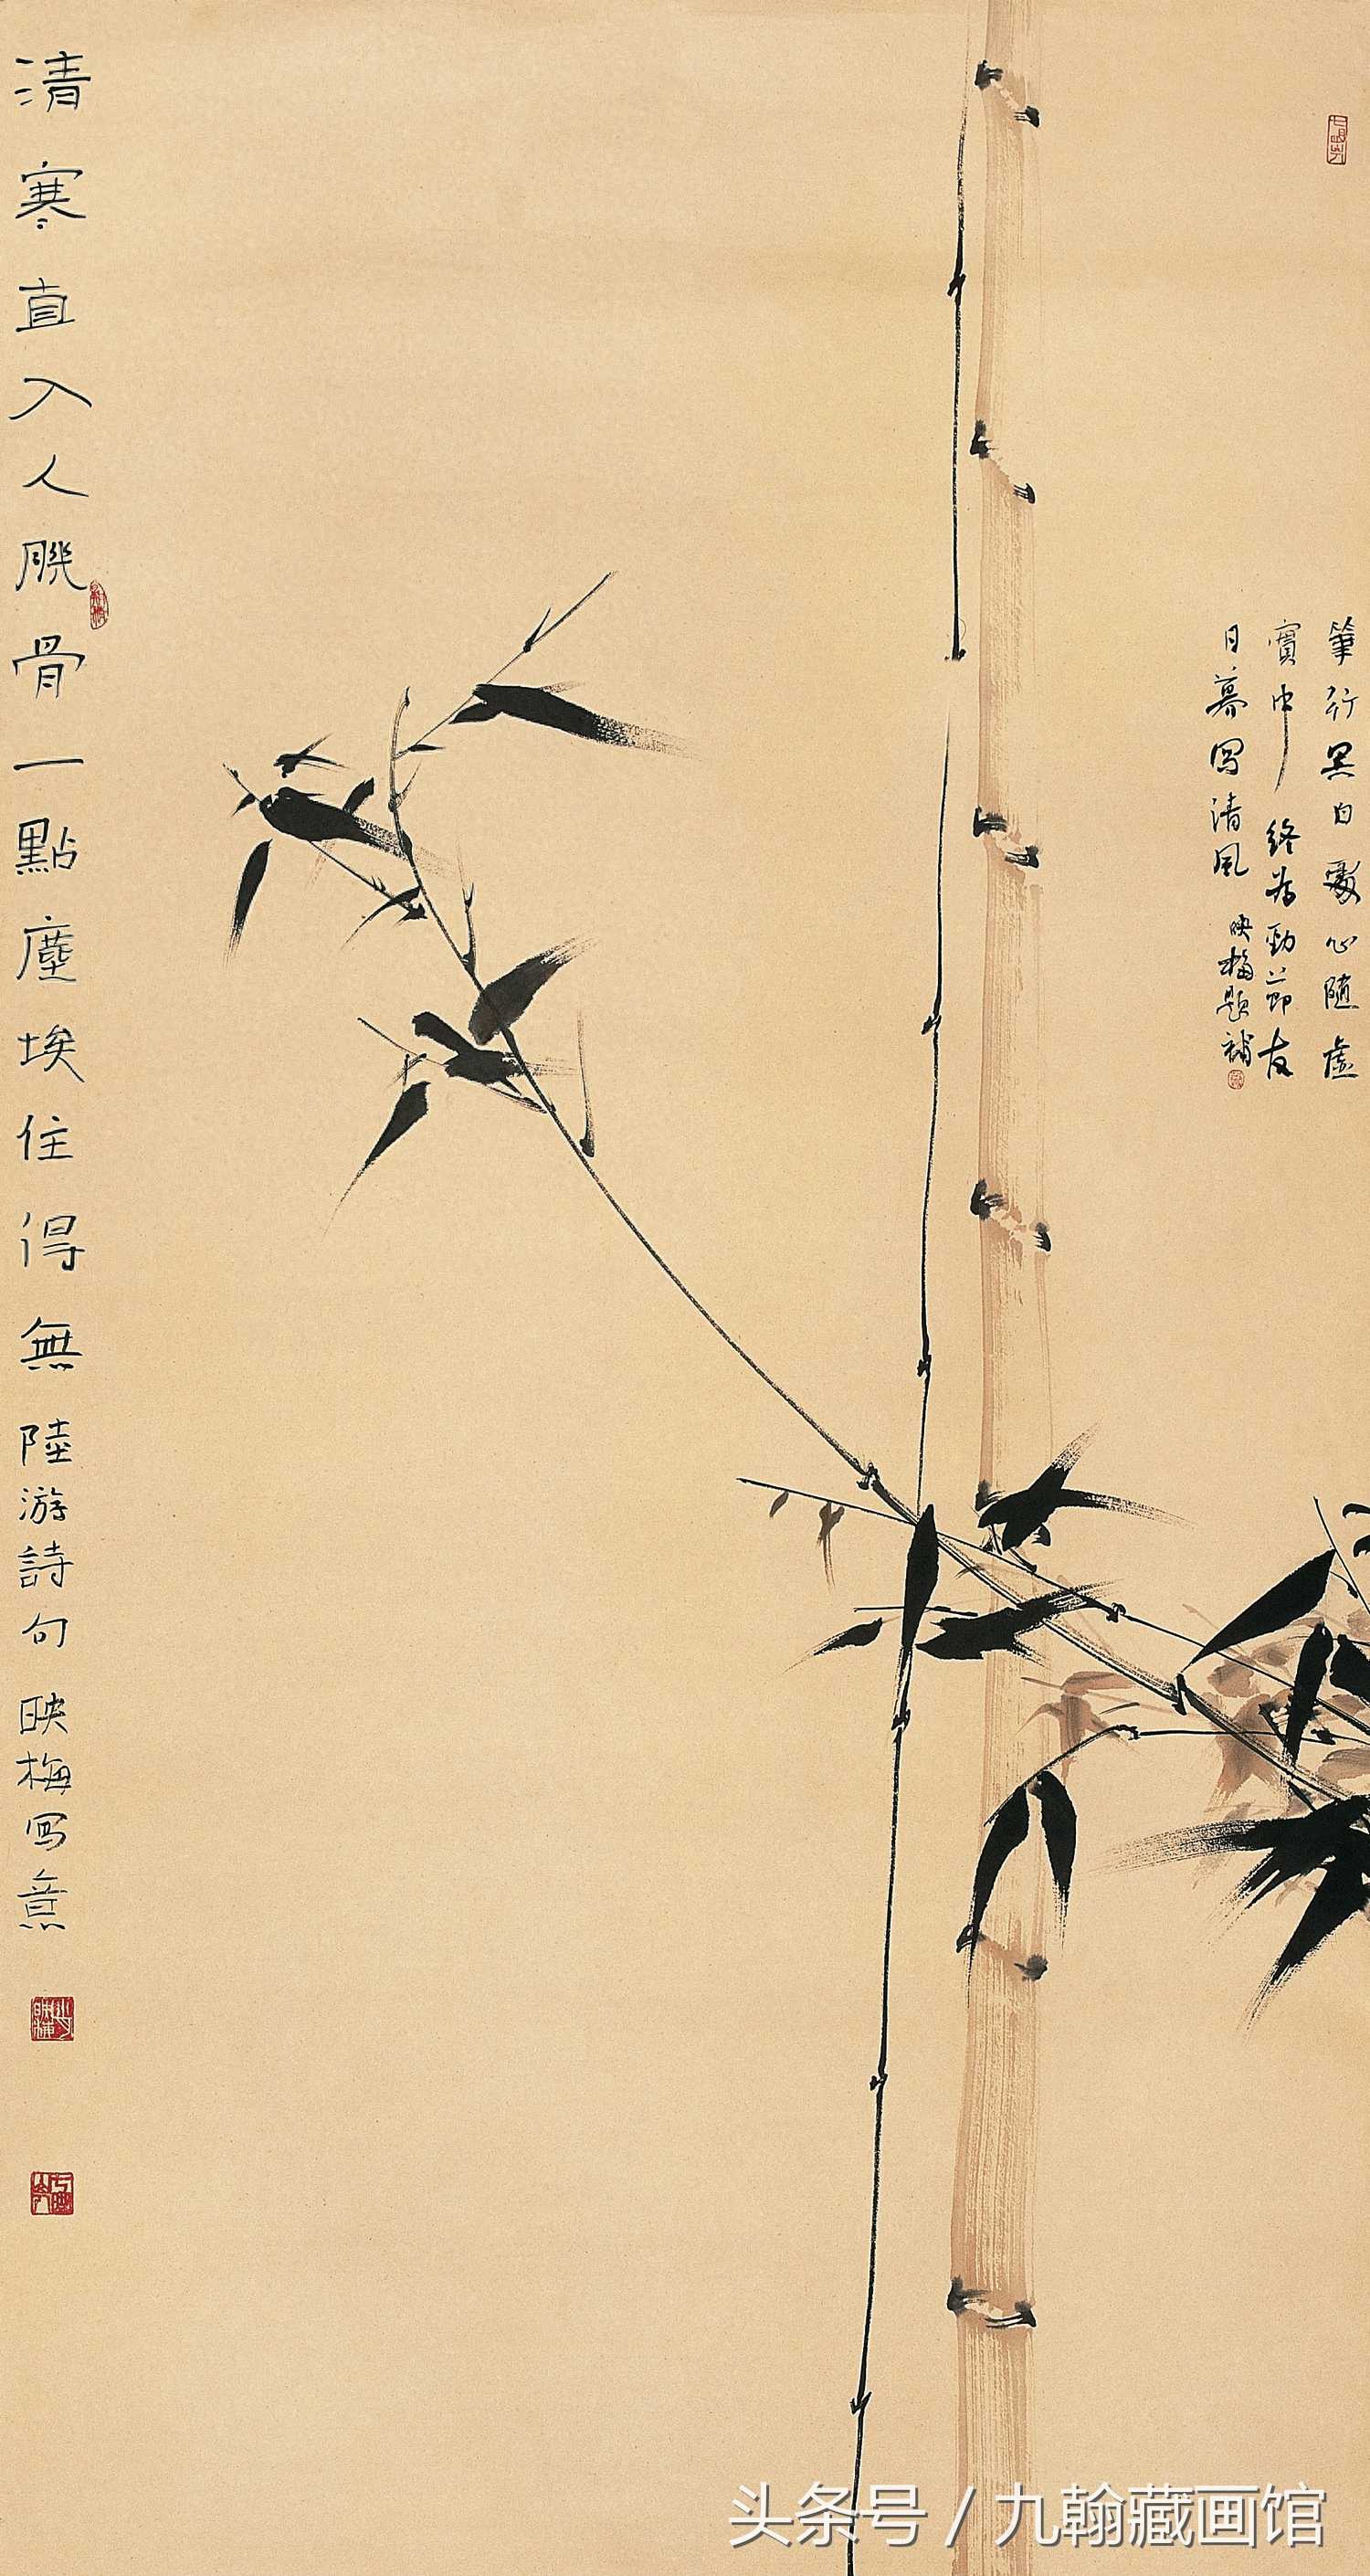 筆行黑白處心隨虛
實中終為勁節友
日暮寫清風 映梅題補
清寒直入人肌骨一點塵埃住得無 陸游詩句 映梅寫意
头条号 / 九翰藏画馆